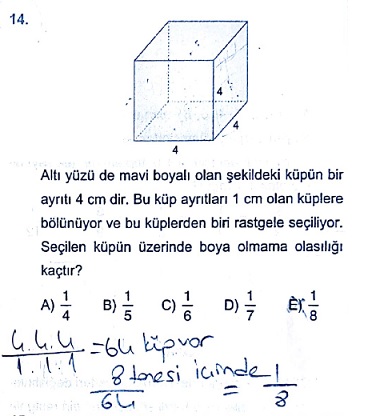 14.
4
4
4
Altı yüzü de mavi boyalı olan şekildeki küpün bir
ayrıtı 4 cm dir. Bu küp ayrıtları 1 cm olan küplere
bölünüyor ve bu küplerden biri rastgele seçiliyor.
Seçilen küpün üzerinde boya olmama olasılığı
kaçtır?
A) 1/4 B) 1/5 C) 1/6 D) 1/7 E) 1/8
4.4.4 / 1.1.1 = 64 küp var
8 tanesi içinde / 64 = 1/8